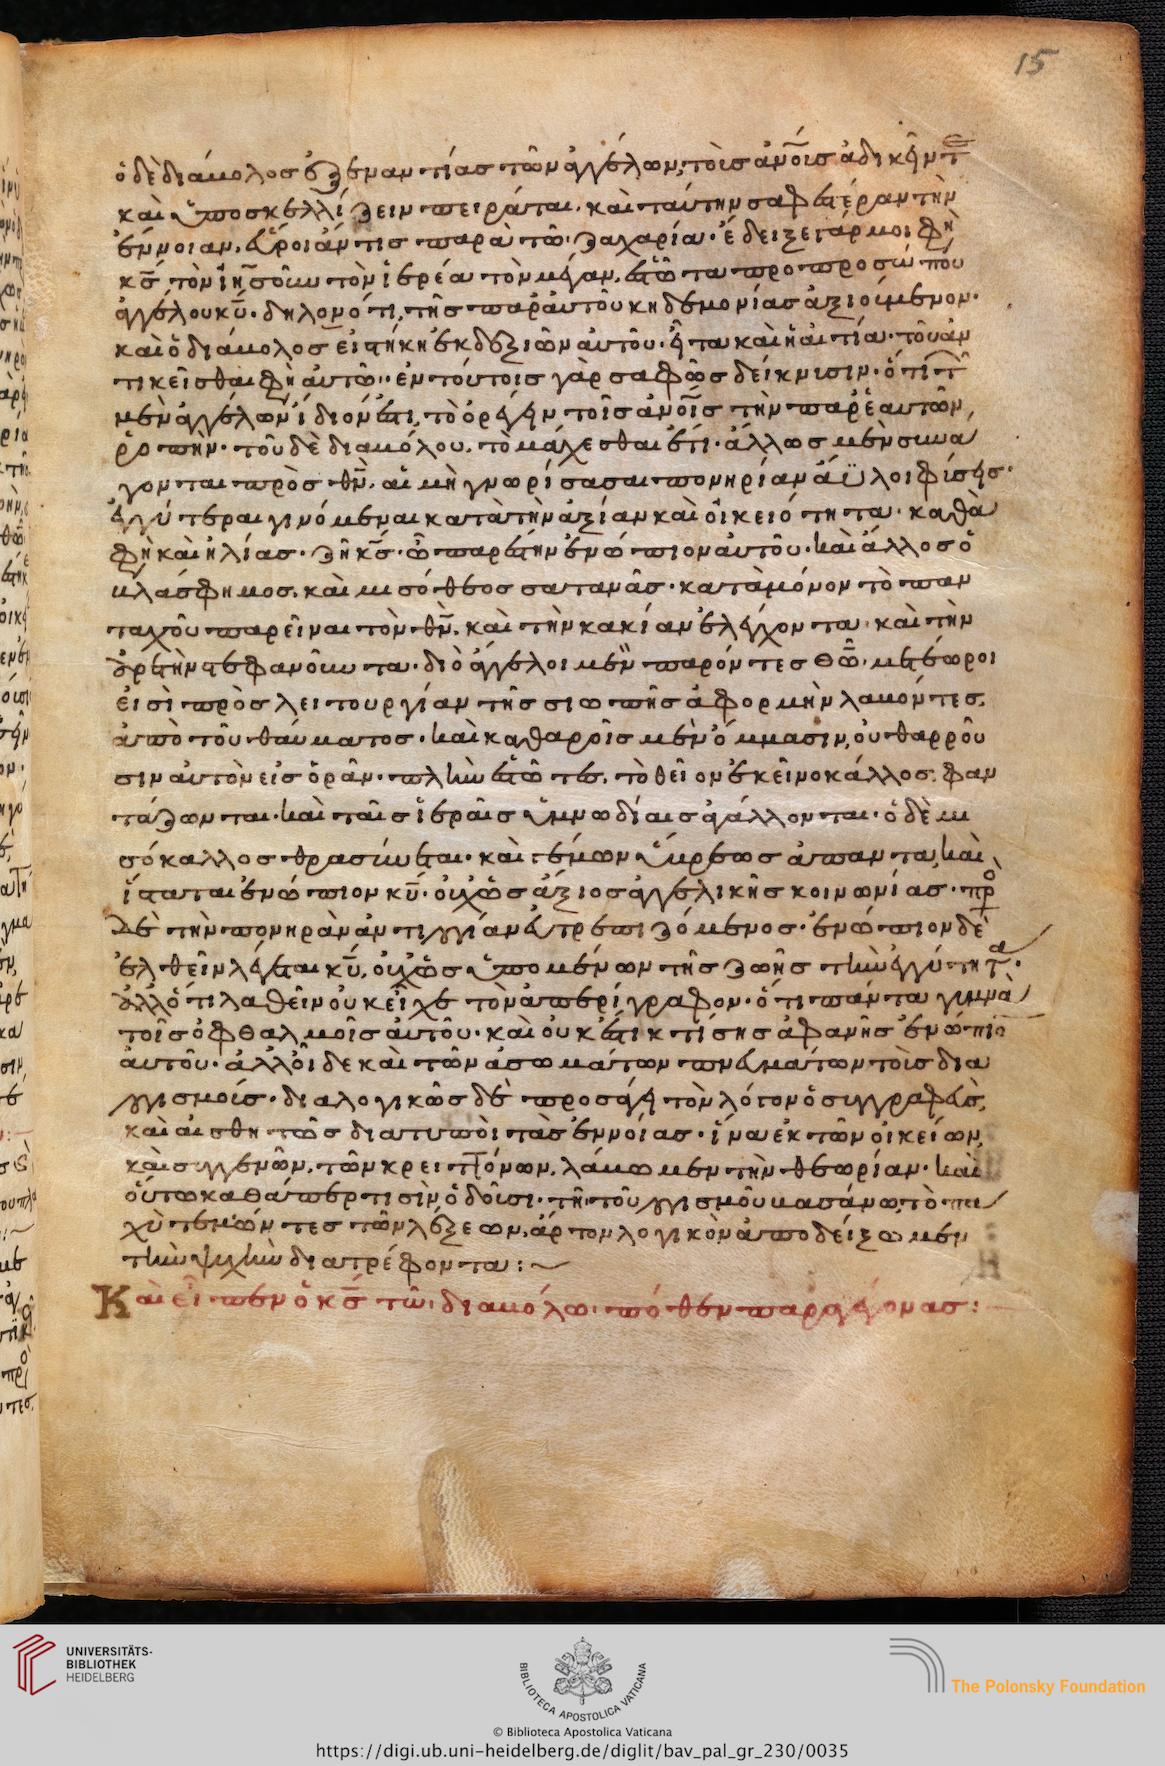 15
ὁ δὲ διάβολος ἐξεναντίας τῶν ἀγγέλων, τοῖς ἀν̅ο̅ις ἀδικεῖν τ̅ε̅
καὶ ὑποσκελίζειν πειρᾶται. καὶ ταύτην σαφεστέραν τὴν
ἔννοιαν, εὕροι ἄν τις παρὰ τῶ ζαχαρία. ἔδειξε γάρ μοι φη
κ̅ς̅, τὸν ἰησοῦν τὸν ἱερέα τὸν μέγαν, ἑστῶτα πρὸ προσώπου
ἀγγέλου κ̅υ̅. δηλονότι, τῆς παρ αὐτοῦ κηδεμονίας ἀξιούμενον.
καὶ ὁ διάβολος εἱστήκη ἐκ δεξιῶν αὐτοῦ. ἦτα καὶ ἡ αἰτία. τοῦ ἀν
τικεῖσθαι φη αὐτῶ. ἐν τούτοις γὰρ σαφῶς δείκνισιν. ὅτι τ
μὲν ἀγγέλων ἴδιον ἐστι, τὸ ὀρέγειν τοῖς ἀν̅ο̅ις τὴν παρ ἑαυτῶν
ῥοπὴν. τοῦ δὲ διαβόλου, τὸ μάχεσθαι ἐστι. ἄλλως μὲν συνά
γονται πρὸς θ̅ν̅, αἱ μὴ γνωρίσασαι πονηρίαν ἄϋλοι φύσεις.
ἐγγύτεραι γινόμεναι κατὰ τὴν ἀξίαν καὶ οἰκειότητα. καθὰ
φη καὶ ἡλίας. ζῆ κ̅ς̅. ῶ παρέστην ἐνώπιον αὐτοῦ. καὶ ἄλλος ὁ
βλάσφημος, καὶ μισόθεος σατανᾶς. κατὰ μόνον τὸ παν
ταχοῦ παρεῖναι τὸν θ̅ν̅, καὶ τὴν κακίαν ἐλέγχοντα. καὶ τὴν
ἀρετὴν στεφανοῦντα. διὸ ἄγγελοι μὲν παρόντες θ̅ω̅. μετέωροι
εἰσὶ πρὸς λειτουργίαν τῆς σιωπῆς ἀφορμὴν λαβόντες,
ἀπὸ τοῦ θαύματος. καὶ καθαροῖς μὲν ὄμμασιν, οὐ θαρροῦ
σιν αὐτὸν εἰσορᾶν. πλὴν ἑστῶτες, τὸ θεῖον ἐκεῖνο κάλλος, φαν
τάζωνται. καὶ ταῖς ἱεραῖς ὑμνωδίαις ἀγάλλονται. ὁ δὲ μι
σόκαλλος θρασύνεται. καὶ τέμων ὕβρεως ἅπαντα, καὶ
ἵσταται ἐνώπιον κ̅υ̅. οὐχ ὡς ἄξιος ἀγγελικῆς κοινωνίας. πρ̅ο̅
δὲ τὴν πονηρὰν ἀντιλογίαν εὐτρεπιζόμενος. ἐνώπιον δὲ
ἐλθεῖν λέγεται κ̅υ̅, οὐχ ὡς ὑπομένων τῆς ζωῆς τὴν ἐγγύτητα.
ἀλλ ὅτι λαθεῖν οὐκ εἶχε τὸν ἀπερίγραφον. ὅτι πάντα γυμνὰ
τοῖς ὀφθαλμοῖς αὐτοῦ. καὶ οὐκ ἔστι κτίσης ἀφανὴς ἐνώπιο
αὐτοῦ. ἀλλ οἶδε καὶ τῶν ἀσωμάτων πνευμάτων τοὺς δια
λογισμούς. διαλογικῶς δὲ προσάγει τὸν λόγον ὁ συγγραφεὺς,
καὶ αἰσθητῶς διατυποῖ τὰς ἐννοίας. ἵνα ἐκ τῶν οἰκείων
καὶ συγγενῶν, τῶν κρειττόνων, λάβωμεν τὴν θεωρίαν. καὶ
οὕτω καθάπερ τισὶν ὁδοῦσι, τῆ τοῦ λογισμοῦ βασάνω, τὸ πα
χὺ τέμνοντες τῶν λέξεων, ἄρτον λογικὸν ἀποδείξωμεν
τὴν ψυχὴν διατρέφοντα:
Καὶ εἶπεν ὁ κ̅ς̅ τῶ διαβόλω. πόθεν παραγέγονας:
UNIVERSITÄTS-
BIBLIOTHEK
HEIDELBERG
BIBLIOTECA APOSTOLICA VATICANA
The Polonsky Foundation
© Biblioteca Apostolica Vaticana
https://digi.ub.uni-heidelberg.de/diglit/bav_pal_gr_230/0035